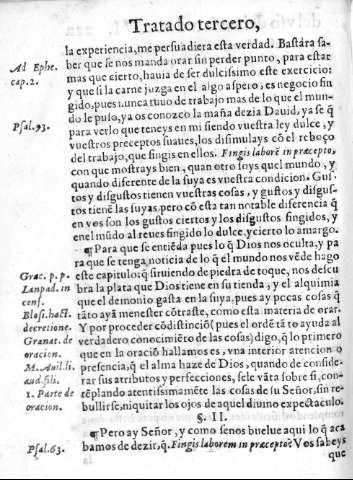 Tratado tercero,
la experiencia, me persuadiera esta verdad. Bastàra sa-
ber que se nos manda orar sin perder punto, para estar
mas que cierto, hauia de ser dulcissimo este exercicio:
y que si la carne juzga en el algo aspero, es negocio fin
gido, pues nunca tuuo de trabajo mas de lo que el mun-
do le puso, ya os conozco la maña dezia Dauid, ya se q̃
para verlo que teneys en mi siendo vuestra ley dulce, y
vuestros preceptos suaues, los disimulays cõ el reboço
del trabajo, que fingis en ellos. Fingis laborẽ in præcepto,
con que mostrays bien, quan otro soys quel mundo, y
quando diferente de la suya es vuestra condicion. Gus-
tos y disgustos tienen vuestras cosas, y gustos y disgus-
tos tienẽ las suyas, pero cõ esta tan notable diferencia q̃
en vos son los gustos ciertos y los disgustos fingidos, y
en el mũdo al reues fingido lo dulce, y cierto lo amargo.
¶Para que se entiẽda pues lo q̃ Dios nos oculta, y pa
ra que se tenga noticia de lo q̃ el mundo nos vẽde hago
este capitulo: q̃ siruiendo de piedra de toque, nos descu
bra la plata que Dios tiene en su tienda, y el alquimia
que el demonio gasta en la suya, pues ay pocas cosas q̃
tãto aya menester cõtraste, como esta materia de orar.
Y por proceder cõ distinciõ (pues el ordẽ tã to ayuda al
verdadero conocimiẽto de las cosas) digo, q̃ lo primero
que en la oraciõ hallamos es, vna interior atencion o
presencia, q̃ el alma haze de Dios, quando de conside-
rar sus atributos y perfecciones, se le vãta sobre si, con-
tẽplando atentissimamẽte las cosas de su Señor, sin re-
bullirse, ni quitar los ojos de aquel diuino expectaculo.
§. II.
¶Pero ay Señor, y como se nos buelue aqui lo q̃ aca
bamos de dezir, q̃. Fingis laborem in præcepto? Vos sabeys
que
Ad Ephe.
cap. 2.
Psal. 93.
Grac. p. p.
Lanpad. in
conf.
Blos. hact.
decretione.
Granat. de
oracion.
M. Auil. li.
aud. fili.
1. Parte de
oracion.
Psal. 63.